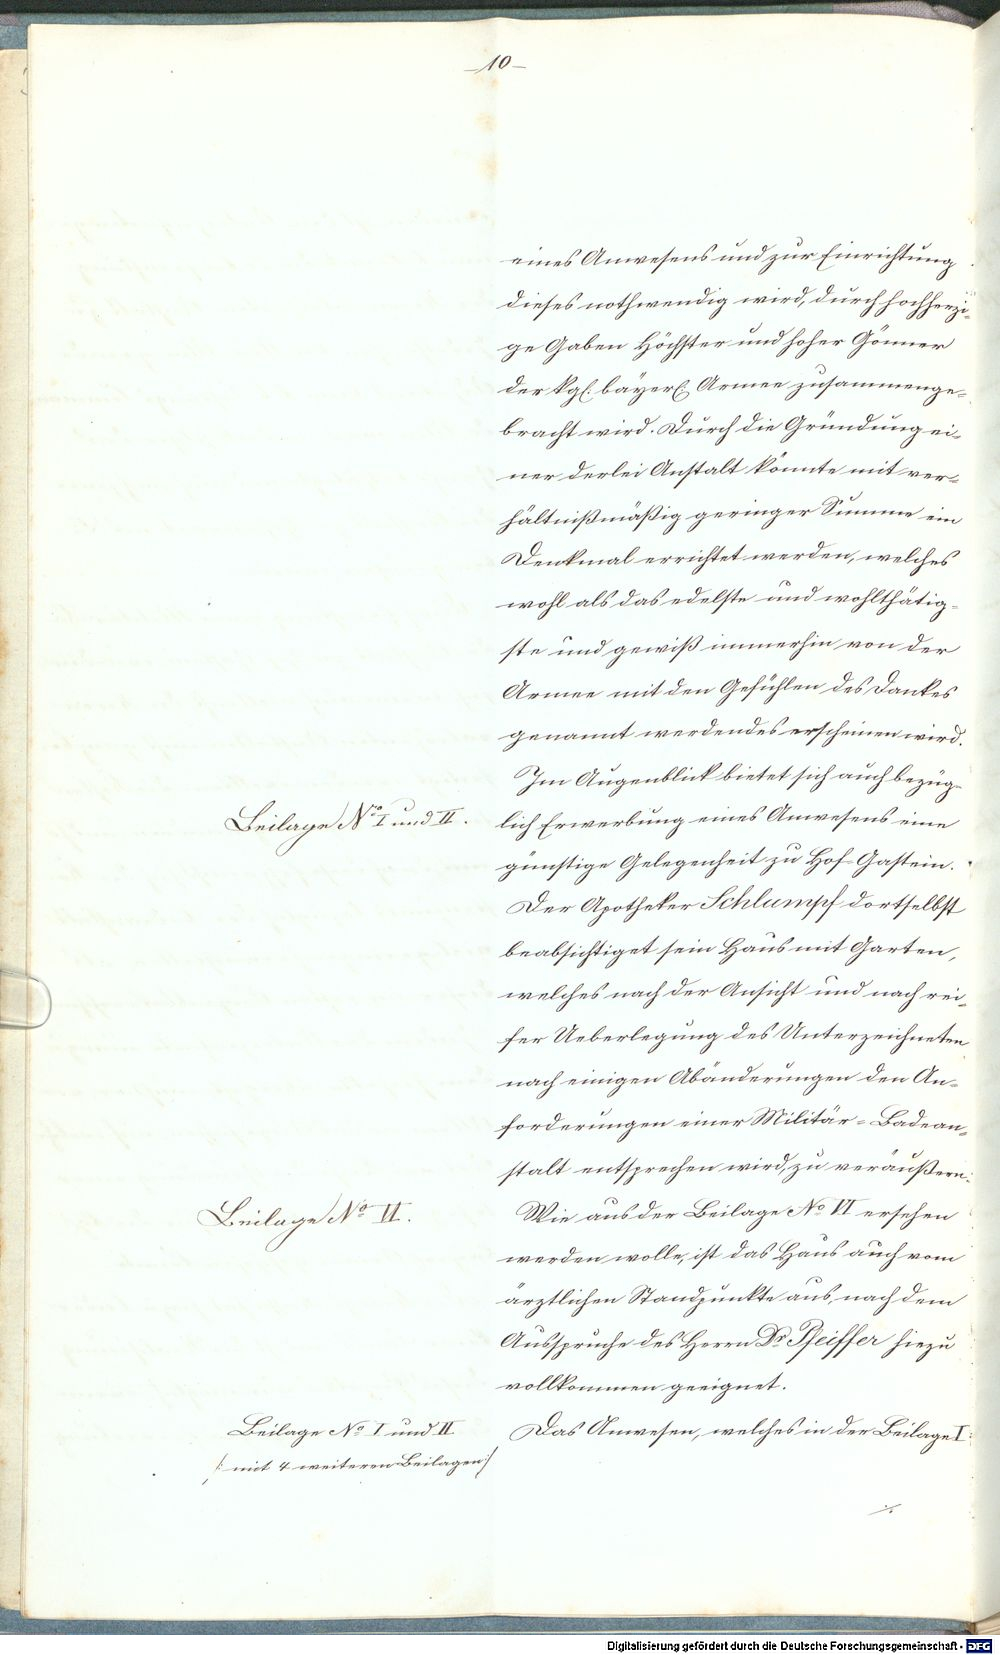 -10-
eines Anwesens und zur Einrichtung
dieses nothwendig wird, durch hochherzi-
ge Gaben Höchster und hoher Gönner
der kgl. bayer. Armee zusammenge-
bracht wird. Durch die Gründung ei-
ner derlei Anstalt könnte mit ver-
hältnißmäßig geringer Summe ein
Denkmal errichtet werden, welches
wohl als das edelste und wohlthätig-
ste und gewiß immerhin von der
Armee mit den Gefühlen des Dankes
genannt werdendes erscheinen wird.
Im Augenblick bietet sich auch bezüg-
Beilage No I und II.
lich Erwerbung eines Anwesens eine
günstige Gelegenheit zu Hof-Gastein.
Der Apotheker Schlumpf dortselbst
beabsichtiget sein Haus mit Garten,
welches nach der Ansicht und nach rei-
fer Ueberlegung des Unterzeichneten
nach einigen Abänderungen den An-
forderungen einer Militär-Badean-
stalt entsprechen wird, zu veräußern.
Beilage No VI.
Wie aus der Beilage No VI ersehen
werden wolle, ist das Haus auch vom
ärztlichen Standpunkte aus, nach dem
Ausspruche des Herrn Dr. Pfeiffer hiezu
vollkommen geeignet.
Beilage No I und II
/: mit 4 weiteren Beilagen :/
Das Anwesen, welches in der Beilage I
./.
Digitalisierung gefördert durch die Deutsche Forschungsgemeinschaft - DFG